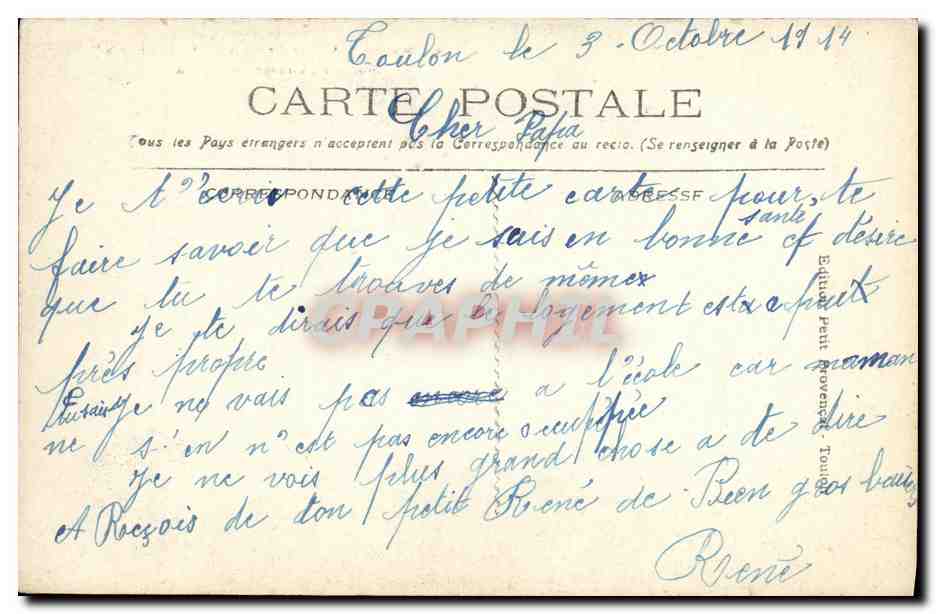 Toulon le 3 Octobre 1914
CARTE POSTALE
Cher Papa
Tous les Pays étrangers n'acceptent pas la Correspondance au recto. (Se renseigner à la Poste)
CORRESPONDANCE ADRESSE
Je t'écris cette petite carte pour te
faire savoir que je sais en bonne santé et désire
que tu te trouves de même
Je te dirais que le logement est a peut
près propre
Tu sais Je ne vais pas encore a l'école car maman
ne s'en n'est pas encore occupée
Je ne vois plus grand chose a te dire
Reçois de ton petit René de Bien gros
René
Edition Petit Provençal, Toulon
CPAPHIL